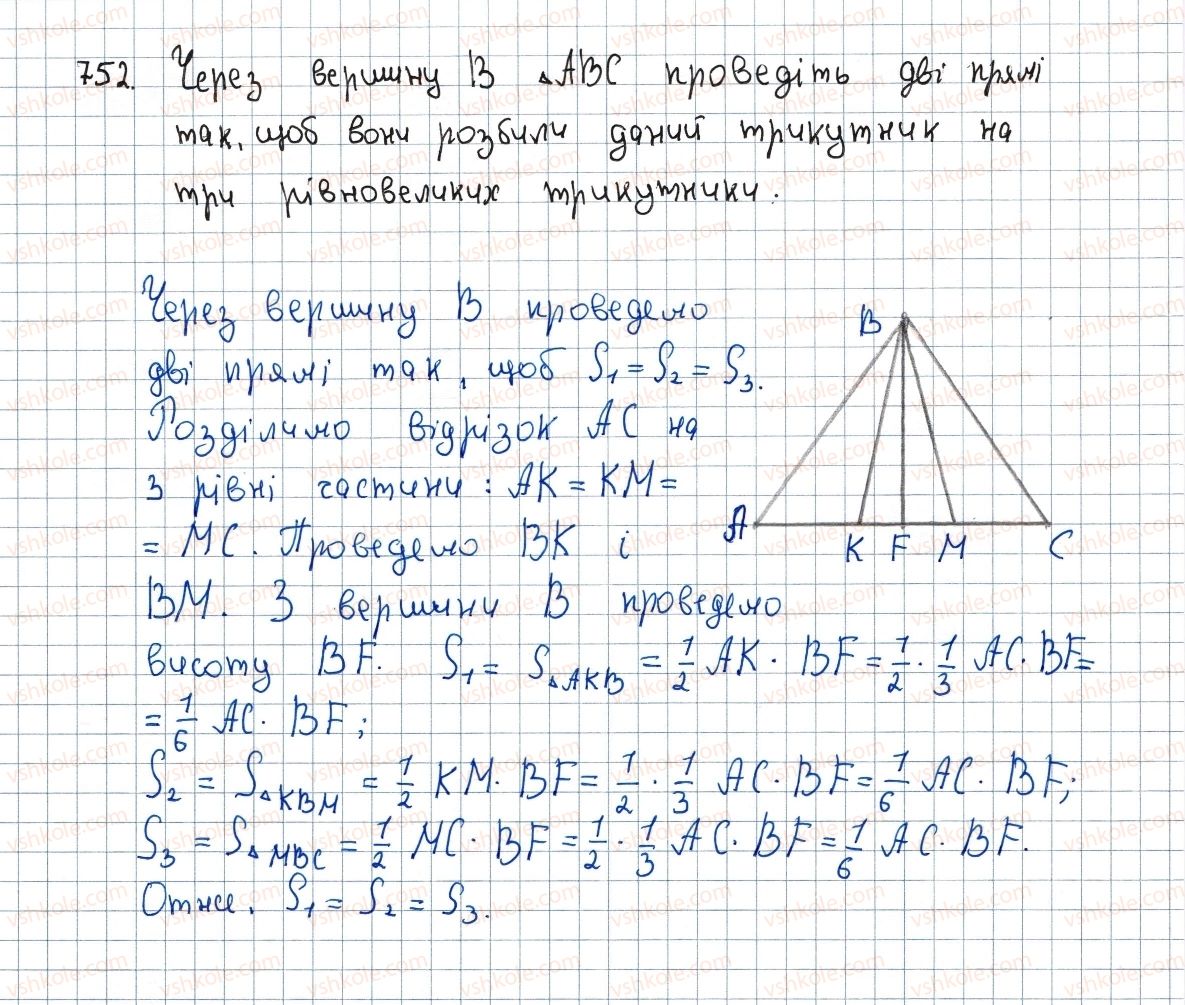 752. Через вершину B △ABC проведіть дві прямі
так, щоб вони розбили даний трикутник на
три рівновеликих трикутники.
Через вершину B проведемо
дві прямі так, щоб S₁ = S₂ = S₃.
Розділимо відрізок AC на
3 рівні частини: AK = KM =
= MC. Проведемо BK і
BM. З вершини B проведемо
висоту BF. S₁ = S△AKB = 1/2 AK · BF = 1/2 · 1/3 AC · BF =
= 1/6 AC · BF;
S₂ = S△KBM = 1/2 KM · BF = 1/2 · 1/3 AC · BF = 1/6 AC · BF;
S₃ = S△MBC = 1/2 MC · BF = 1/2 · 1/3 AC · BF = 1/6 AC · BF.
Отже, S₁ = S₂ = S₃.
B
A K F M C
vshkole.com